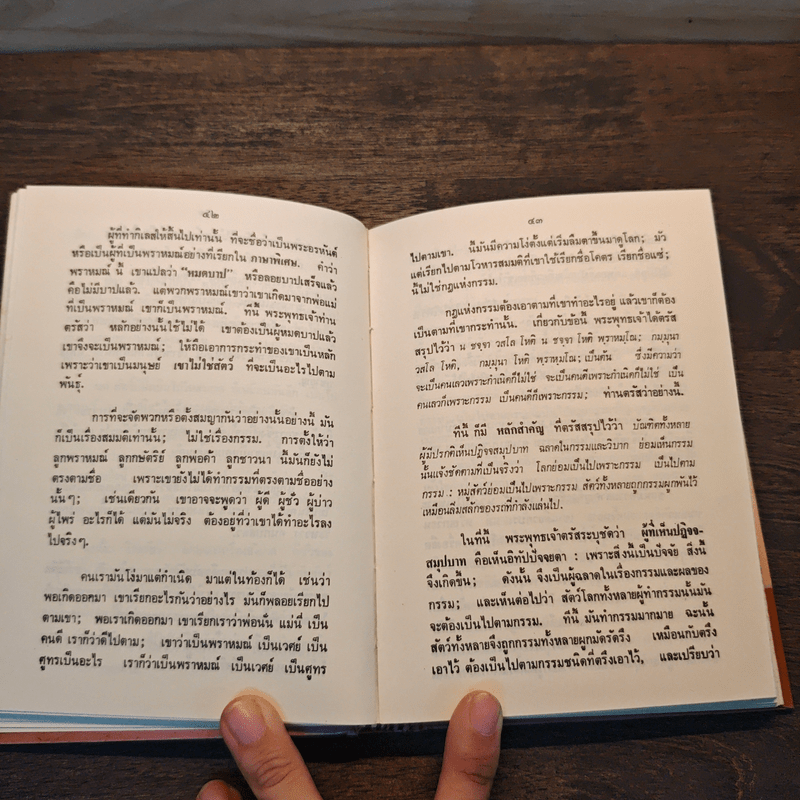 ๔๒
ผู้ที่ทำกิเลสให้สิ้นไปเท่านั้น ที่จะชื่อว่าเป็นพระอรหันต์
หรือเป็นผู้ที่เป็นพราหมณ์อย่างที่เรียกใน ภาษาพิเศษ. คำว่า
พราหมณ์ นี้ เขาแปลว่า "หมดบาป" หรือลอยบาปเสร็จแล้ว
คือไม่มีบาปแล้ว. แต่พวกพราหมณ์เขาว่าเขาเกิดมาจากพ่อแม่
ที่เป็นพราหมณ์ เขาก็เป็นพราหมณ์. ทีนี้ พระพุทธเจ้าท่าน
ตรัสว่า หลักอย่างนั้นใช้ไม่ได้ เขาต้องเป็นผู้หมดบาปแล้ว
เขาจึงจะเป็นพราหมณ์; ให้ถือเอาการกระทำของเขาเป็นหลัก
เพราะว่าเขาเป็นมนุษย์ เขาไม่ใช่สัตว์ ที่จะเป็นอะไรไปตาม
พันธุ์.
การที่จะจัดพวกหรือตั้งสมญากันว่าอย่างนั้นอย่างนี้ มัน
ก็เป็นเรื่องสมมติเท่านั้น; ไม่ใช่เรื่องกรรม. การตั้งให้ว่า
ลูกพราหมณ์ ลูกกษัตริย์ ลูกพ่อค้า ลูกชาวนา นี้มันก็ยังไม่
ตรงตามชื่อ เพราะเขายังไม่ได้ทำกรรมที่ตรงตามชื่ออย่าง
นั้นๆ; เช่นเดียวกัน เขาอาจจะพูดว่า ผู้ดี ผู้ชั่ว ผู้บ่าว
ผู้ไพร่ อะไรก็ได้ แต่มันไม่จริง ต้องอยู่ที่ว่าเขาได้ทำอะไรลง
ไปจริงๆ.
คนเรามันโง่มาแต่กำเนิด มาแต่ในท้องก็ได้ เช่นว่า
พอเกิดออกมา เขาเรียกอะไรกันว่าอย่างไร มันก็พลอยเรียกไป
ตามเขา; พอเราเกิดออกมา เขาเรียกเราว่าพ่อนั้น แม่นี่ เป็น
คนดี เราก็ว่าดีไปตาม; เขาว่าเป็นพราหมณ์ เป็นเวศย์ เป็น
ศูทรเป็นอะไร เราก็ว่าเป็นพราหมณ์ เป็นเวศย์ เป็นศูทร
๔๓
ไปตามเขา. นี้มันมีความโง่ตั้งแต่เริ่มลืมตาขึ้นมาดูโลก; มัว
แต่เรียกไปตามโวหารสมมติที่เขาใช้เรียกชื่อโคตร เรียกชื่อแซ่;
นี้ไม่ใช่กฎแห่งกรรม.
กฎแห่งกรรมต้องเอาตามที่เขาทำอะไรอยู่ แล้วเขาก็ต้อง
เป็นตามที่เขากระทำนั้น. เกี่ยวกับข้อนี้ พระพุทธเจ้าได้ตรัส
สรุปไว้ว่า น ชจฺจา วสโล โหติ น ชจฺจา โหติ พฺราหฺมโณ; กมฺมุนา
วสโล โหติ, กมฺมุนา โหติ พฺราหฺมโณ; เป็นต้น ซึ่งมีความว่า
จะเป็นคนเลวเพราะกำเนิดก็ไม่ใช่ จะเป็นคนดีเพราะกำเนิดก็ไม่ใช่ เป็น
คนเลวก็เพราะกรรม เป็นคนดีก็เพราะกรรม; ท่านตรัสว่าอย่างนี้.
ทีนี้ ก็มี หลักสำคัญ ที่ตรัสสรุปไว้ว่า บัณฑิตทั้งหลาย
ผู้มีปรกติเห็นปฏิจจสมุปบาท ฉลาดในกรรมและวิบาก ย่อมเห็นกรรม
นั้นแจ้งชัดตามที่เป็นจริงว่า โลกย่อมเป็นไปเพราะกรรม เป็นไปตาม
กรรม : หมู่สัตว์ย่อมเป็นไปเพราะกรรม สัตว์ทั้งหลายถูกกรรมผูกพันไว้
เหมือนลิ่มสลักของรถที่กำลังแล่นไป.
ในที่นี้ พระพุทธเจ้าตรัสระบุชัดว่า ผู้ที่เห็นปฏิจจ-
สมุปบาท คือเห็นอิทัปปัจจยตา : เพราะสิ่งนี้เป็นปัจจัย สิ่งนี้
จึงเกิดขึ้น; ดังนั้น จึงเป็นผู้ฉลาดในเรื่องกรรมและผลของ
กรรม; และเห็นต่อไปว่า สัตว์โลกทั้งหลายผู้ทำกรรมนั้นมัน
จะต้องเป็นไปตามกรรม. ทีนี้ มันทำกรรมมากมาย ฉะนั้น
สัตว์ทั้งหลายจึงถูกกรรมทั้งหลายผูกมัดรัดรึง เหมือนกับตรึง
เอาไว้ ต้องเป็นไปตามกรรมชนิดที่ตรึงเอาไว้, และเปรียบว่า